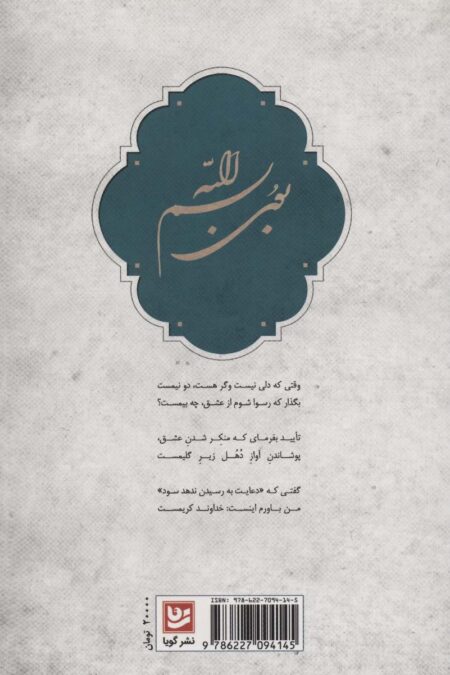 الله
وقتی که دلی نیست وگر هست، دو نیمست
بگذار که رسوا شوم از عشق، چه بیمست؟
تأیید بفرمای که منکِر شدنِ عشق،
پوشاندنِ آوازِ دُهُل زیرِ گلیمست
گفتی که «دعایت به رسیدن ندهد سود»
من باورم اینست: خداوند کریمست
ISBN: 978-622-7094-14-5
9 786227 094145
نشر گویا
۲۰۰۰۰ تومان